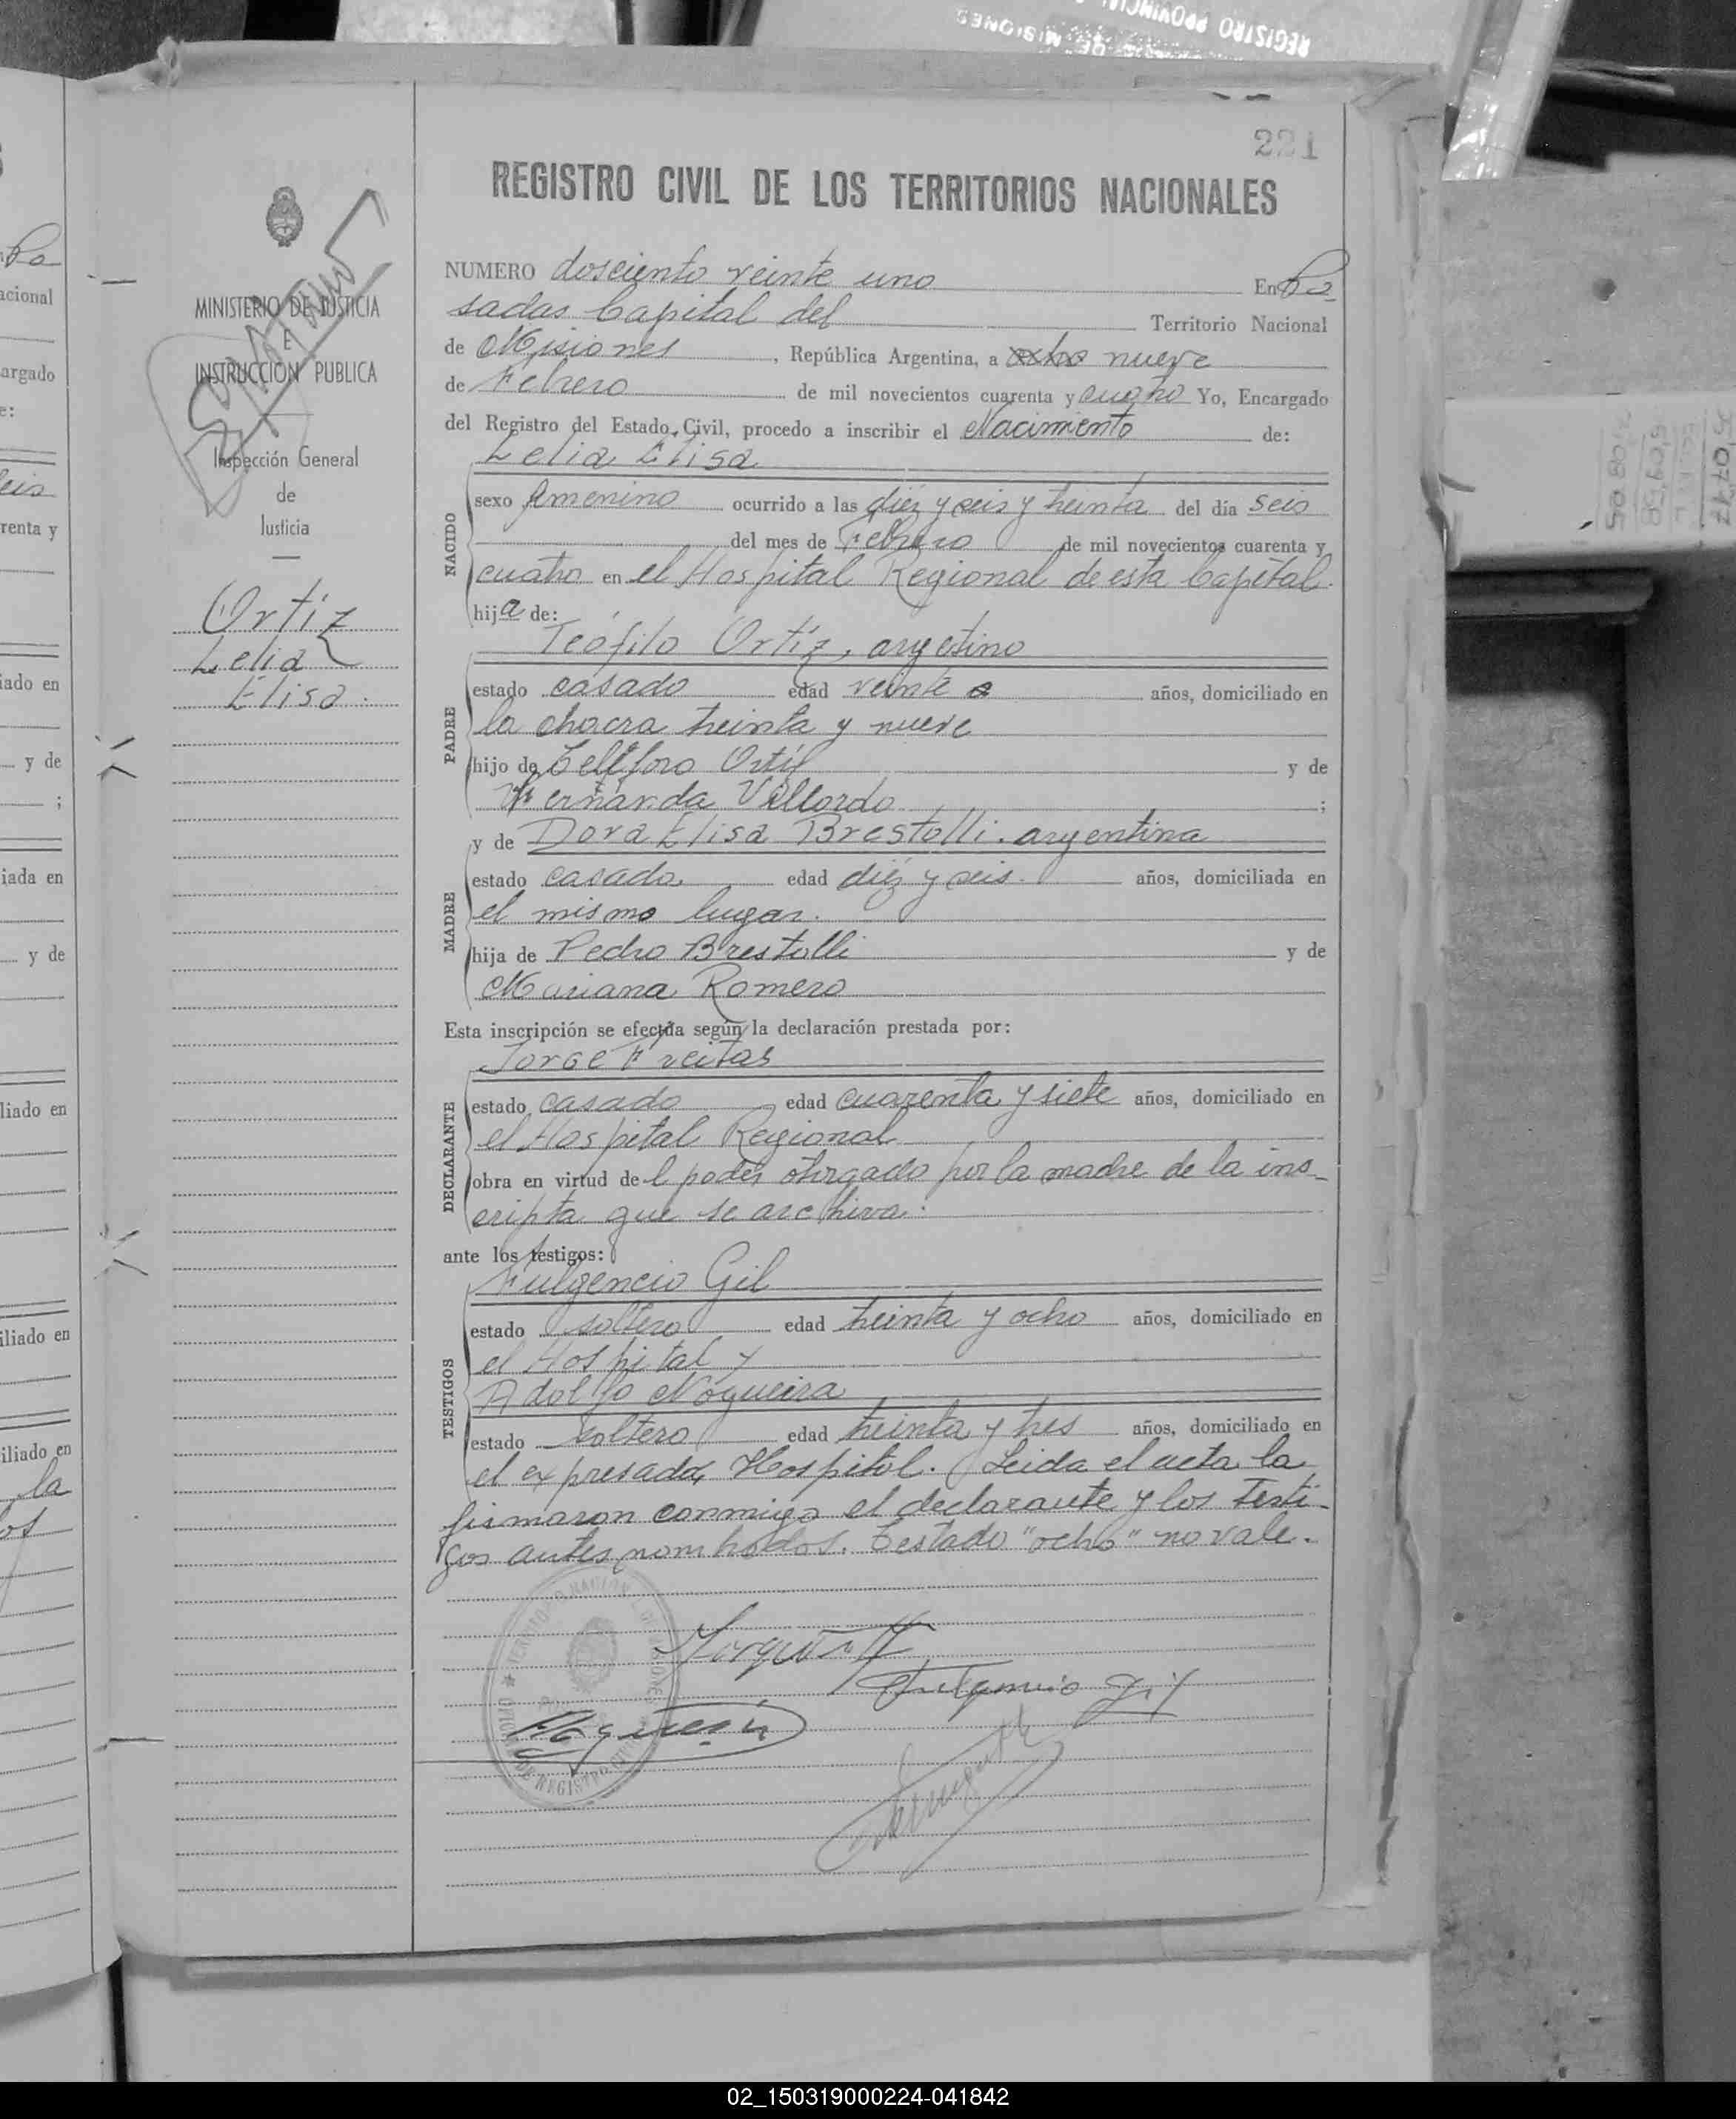 REGISTRO PROVINCIAL
DE MISIONES
221
REGISTRO CIVIL DE LOS TERRITORIOS NACIONALES
MINISTERIO DE JUSTICIA
E
INSTRUCCION PUBLICA
Inspección General
de
Justicia
Ortiz
Lelia
Elisa.
NUMERO dosciento veinte uno En Po
sadas Capital del Territorio Nacional
de Misiones, República Argentina, a ocho nueve
de Febrero de mil novecientos cuarenta y cuatro Yo, Encargado
del Registro del Estado Civil, procedo a inscribir el Nacimiento de:
Lelia Elisa
NACIDO
sexo femenino ocurrido a las diéz y seis y treinta del día seis
del mes de Febrero de mil novecientos cuarenta y
cuatro en el Hospital Regional de esta Capital.
hija de:
Teófilo Ortíz, argetino
PADRE
estado casado edad veinte años, domiciliado en
la chacra treinta y nueve
hijo de Telésforo Ortíz y de
Fernanda Villordo ;
y de Dora Elisa Brestolli. argentina
MADRE
estado casada edad diéz y seis. años, domiciliada en
el mismo lugar.
hija de Pedro Brestolli y de
Mariana Romero
Esta inscripción se efectúa según la declaración prestada por:
Jorge Freitas
DECLARANTE
estado casado edad cuarenta y siete años, domiciliado en
el Hospital Regional
obra en virtud de l poder otorgado por la madre de la ins-
cripta que se archiva.
ante los testigos:
Fulgencio Gil
TESTIGOS
estado soltero edad treinta y ocho años, domiciliado en
el Hospital y
Adolfo Nogueira
estado soltero edad treinta y tres años, domiciliado en
el expresado Hospital. Leida el acta la
firmaron conmigo el declarante y los testi-
gos antes nombrados. Testado "ocho" no vale.
Fulgencio Gil
Nogueira
02_150319000224-041842